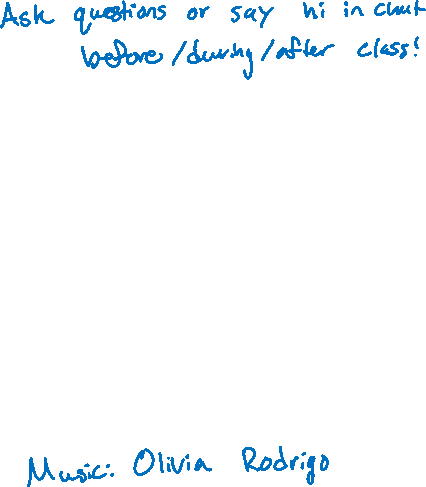 Ask questions or say hi in chat
before/during/after class!
Music: Olivia Rodrigo